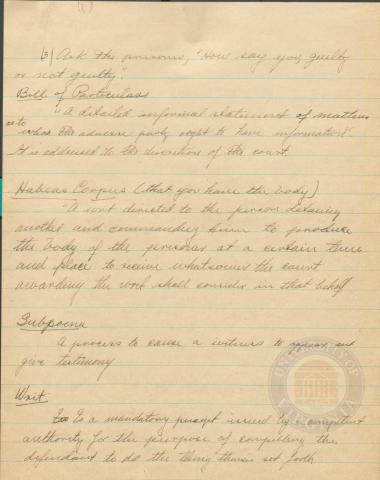 (3) Ask the prisoner, "How say you, guilty
or not guilty."
Bill of Particulars
"A detailed informal statement of matters
as to
which the adverse party ought to have information"
It is addressed to the discretion of the court.
Habeas Corpus (that you have the body)
"A writ directed to the person detaining
another and commanding him to produce
the body of the prisoner at a certain time
and place to receive whatsoever the court
awarding the writ shall consider in that behalf
Subpoena
A process to cause a witness to appear and
give testimony
Writ
Is a mandatory precept issued by competent
authority for the purpose of compelling the
defendant to do the thing therein set forth
UNIVERSITY OF VIRGINIA